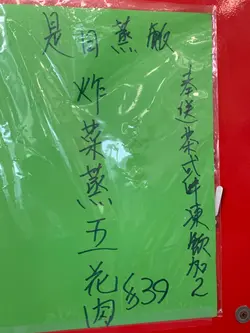 是日蒸飯
炸菜蒸五花肉 $39
奉送茶或咩凍飲加2